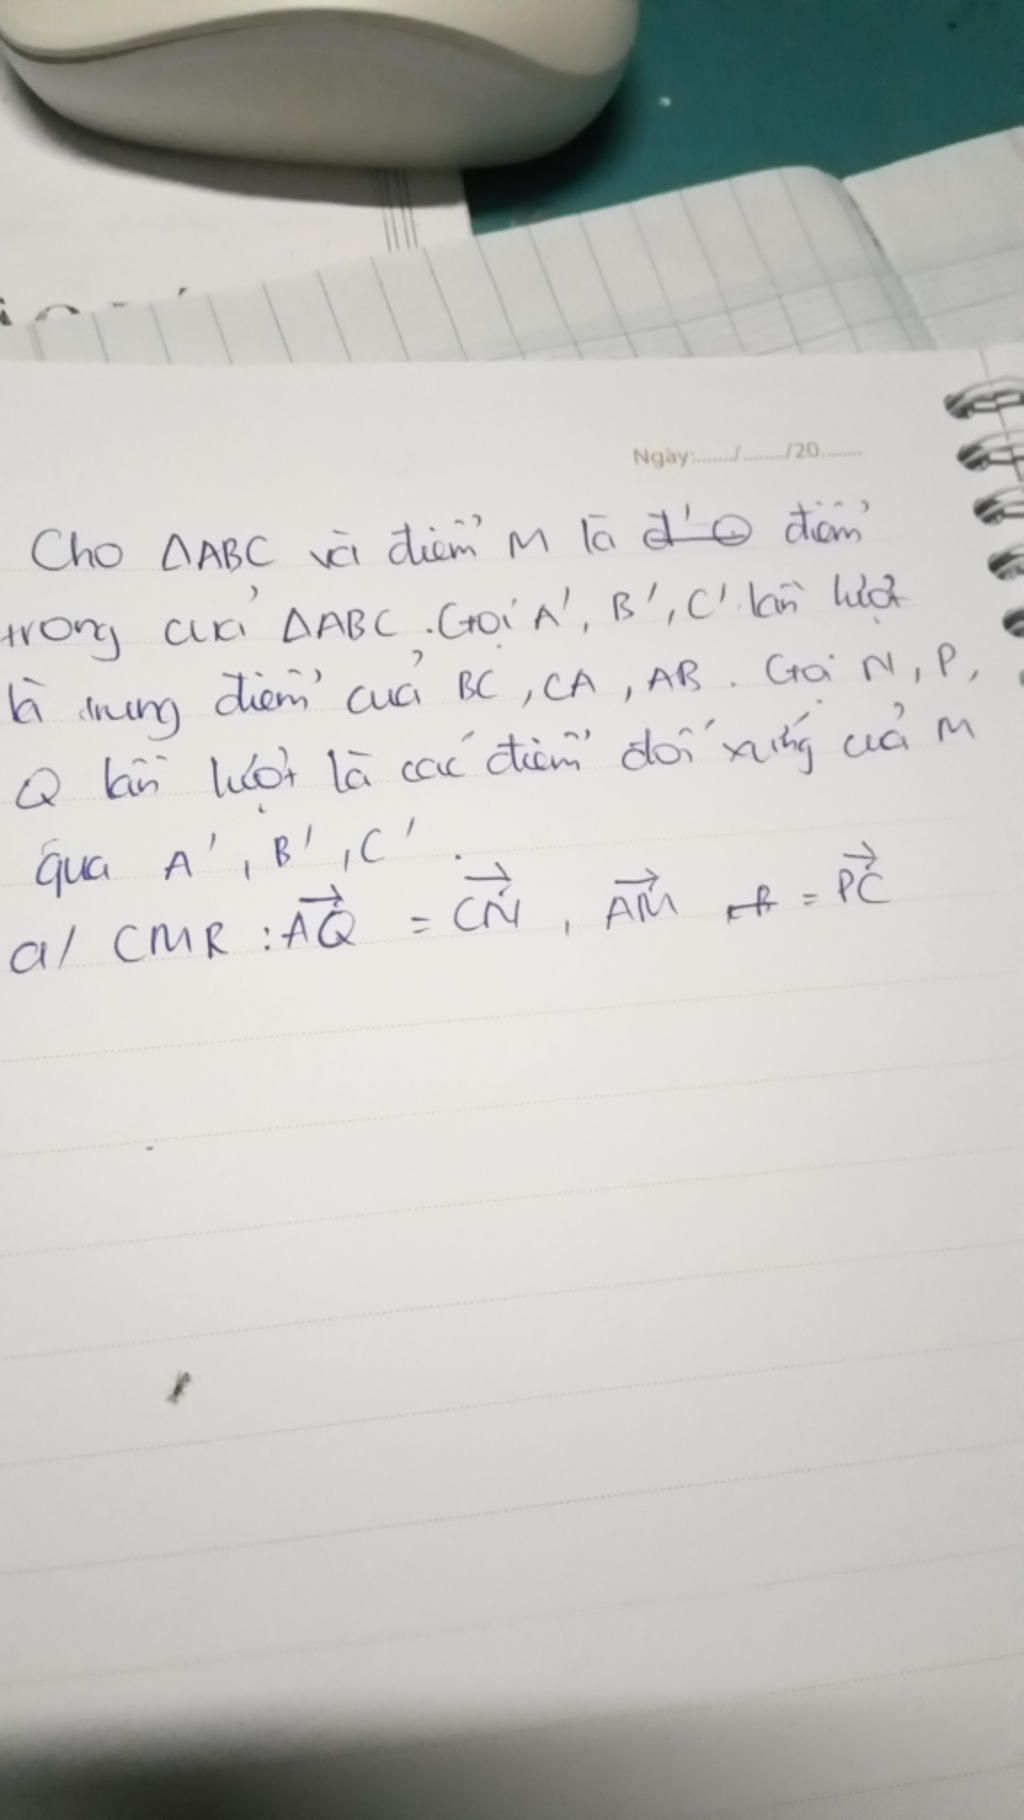 Ngày:....../......./20.......
Cho ΔABC và điểm M là điểm
trong của ΔABC. Gọi A', B', C' lần lượt
là trung điểm của BC, CA, AB. Gọi N, P,
Q lần lượt là các điểm đối xứng của M
qua A', B', C'.
a/ CMR: $\overrightarrow{AQ}$ = $\overrightarrow{CN}$, $\overrightarrow{AM}$ = $\overrightarrow{PC}$